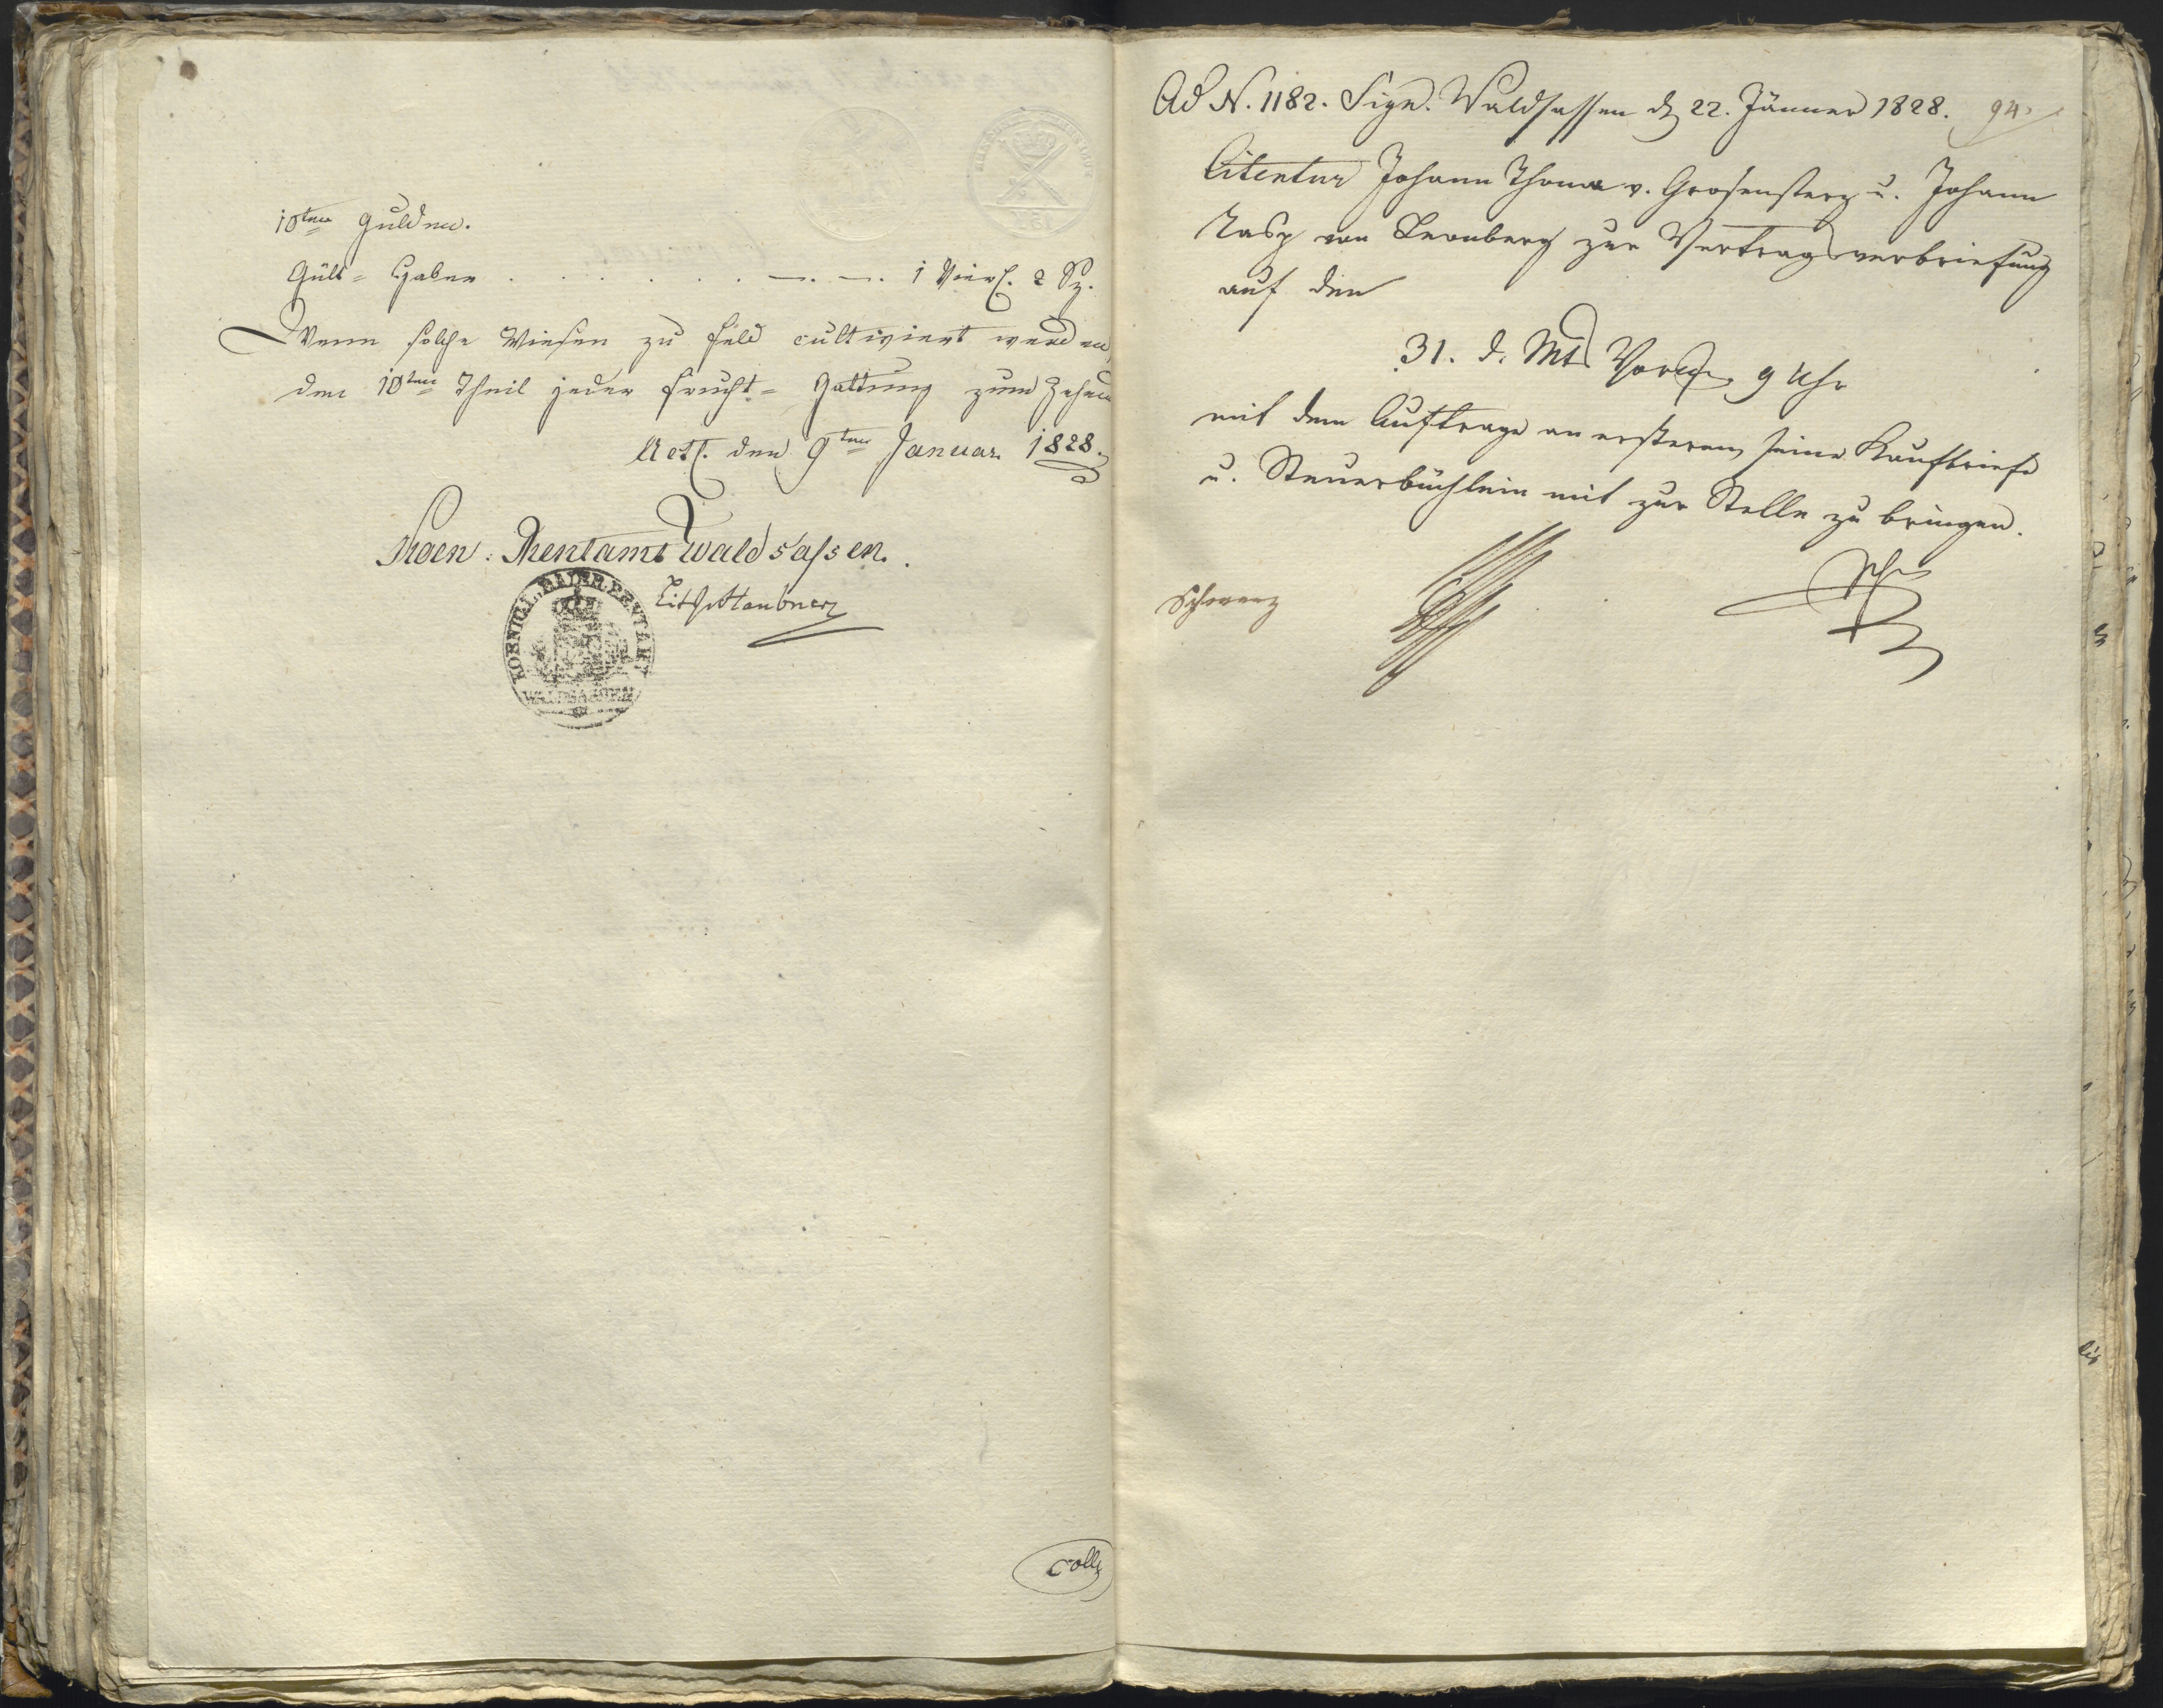 10ten Gulden.
Gült=Haber . . . . . . —. —. 1 Vierl. 2 Sz.
Wenn solche Wiesen zu Feld cultiviert werden,
den 10ten Theil jeder Frucht=Gattung zum Zehend
Act. den 9ten Januar 1828.
Koen: Rentamt Waldsassen.
KOENIGL. BAIER. RENTAMT
WALDSASSEN
Coll
Ad N. 1182. Sign. Waldsassen d 22. Jänner 1828. 94.
Citentur Johann Thoma v. Grosensterz u. Johann
Rasp von Leonberg zur Vertragsverbriefung
auf den
31. d. Mts Vorm. 9 Uhr
mit dem Auftrage an ersteren seine Kaufbriefe
u. Steuerbüchlein mit zur Stelle zu bringen.
Schwarz